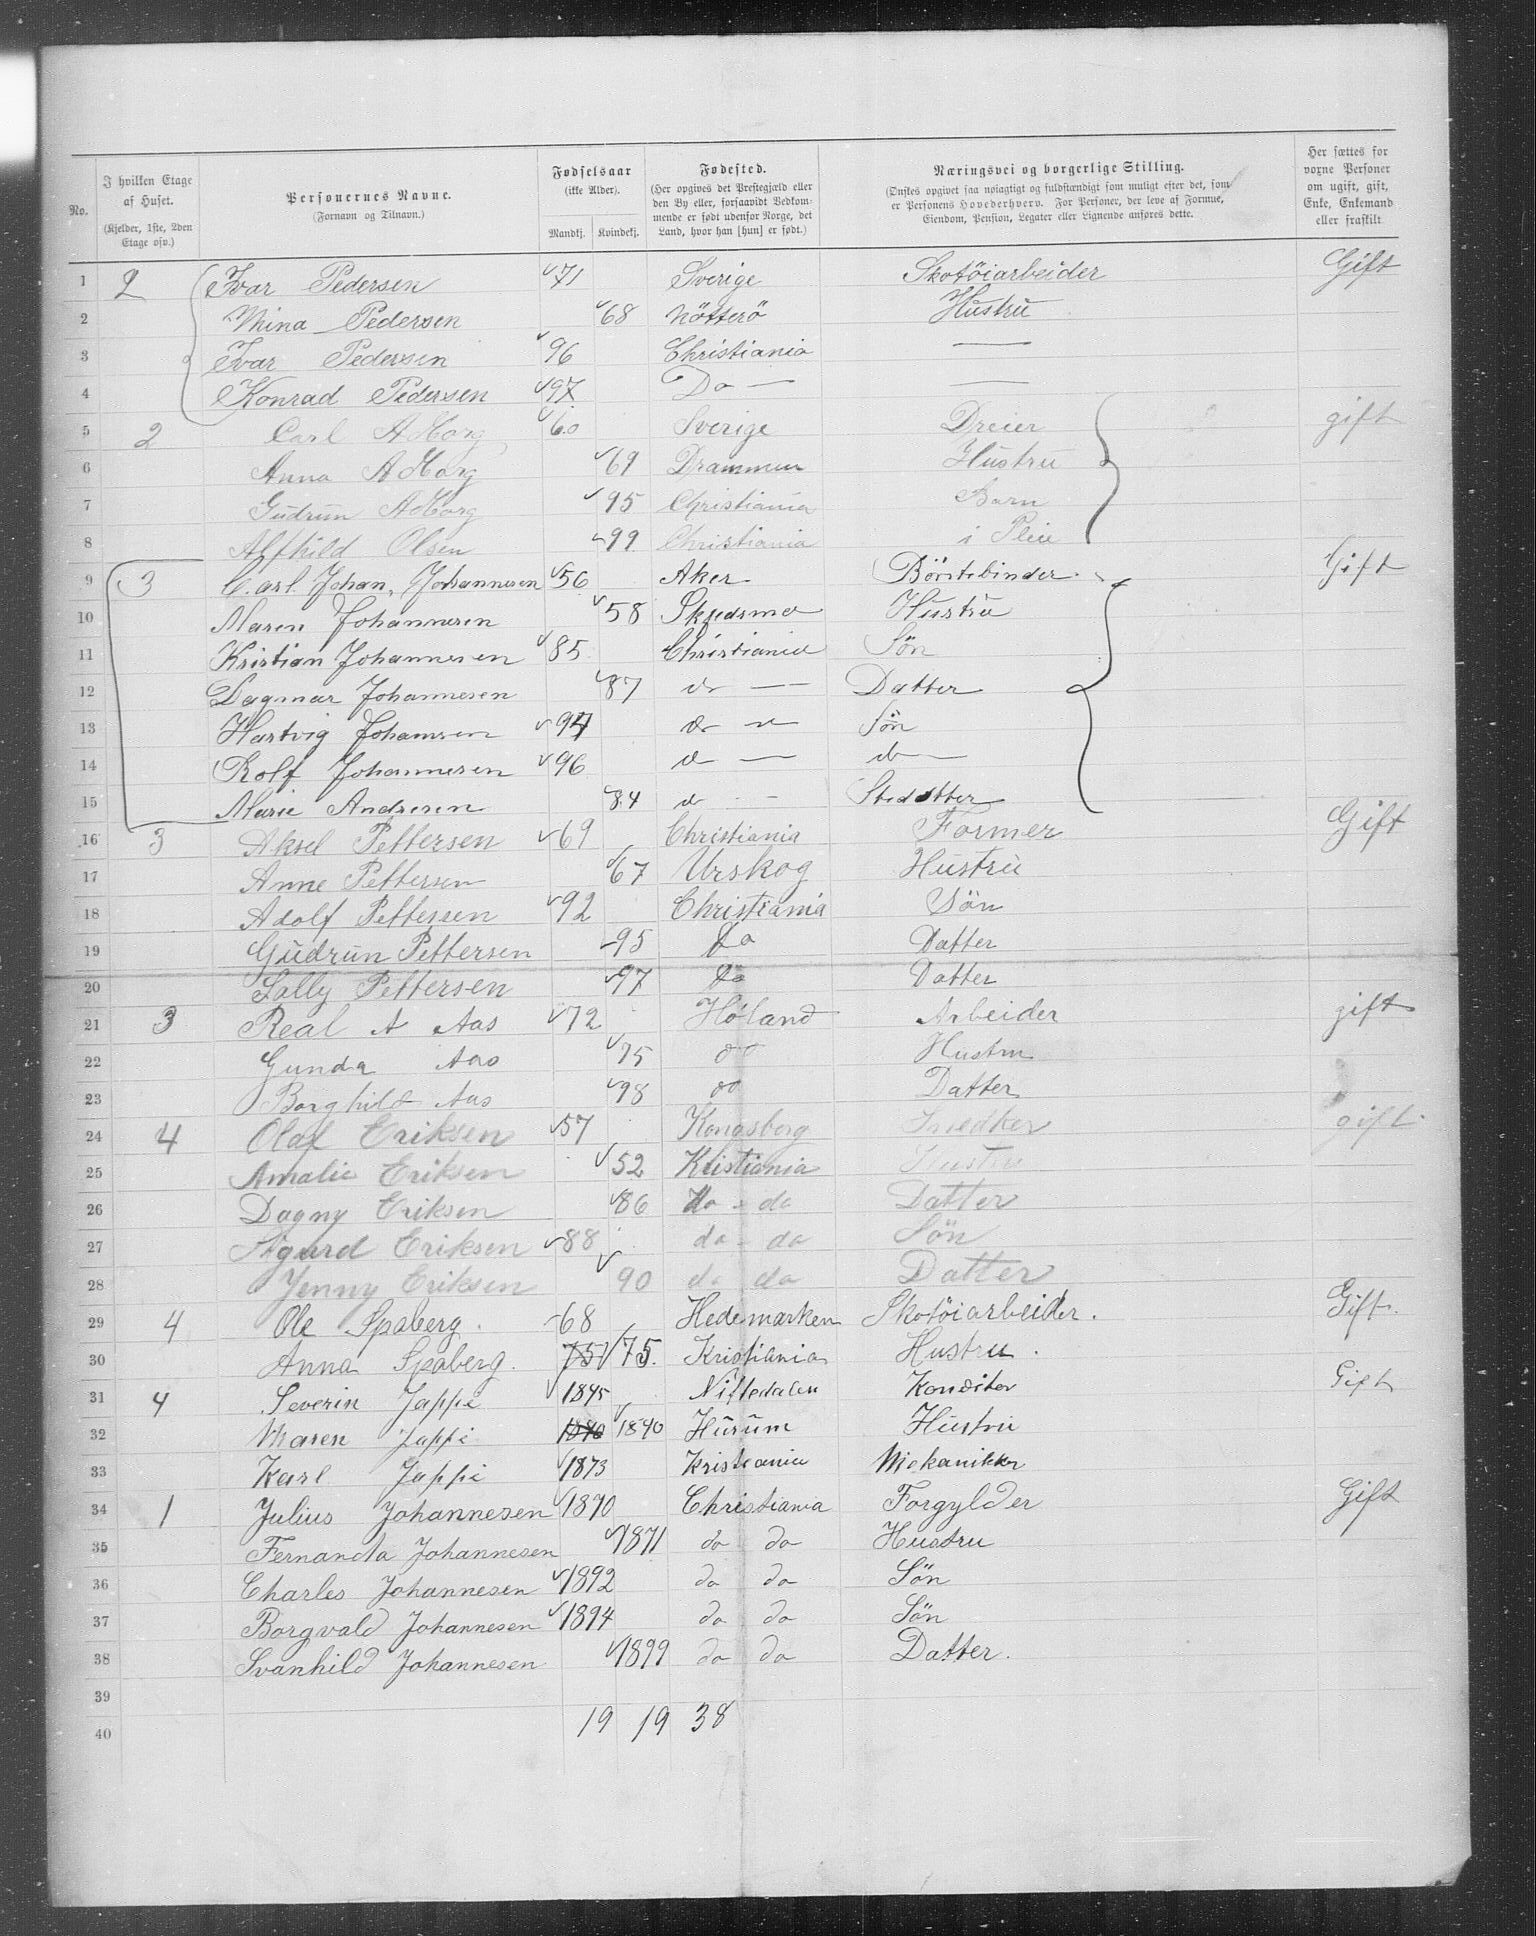 No. | I hvilken Etage af Huset. (Kjelder, 1ste, 2den Etage osv.) | Personernes Navne. (Fornavn og Tilnavn.) | Fødselsaar (ikke Alder). Mandkj. Kvindekj. | Fødested. (Her opgives det Prestegjæld eller den By eller, forsaavidt Vedkommende er født udenfor Norge, det Land, hvor han [hun] er født.) | Næringsvei og borgerlige Stilling. (Ønskes opgivet saa nøiagtigt og fuldstændigt som muligt efter det, som er Personens Hovederhverv. For Personer, der leve af Formue, Eiendom, Pension, Legater eller Lignende anføres dette.) | Her sættes for voxne Personer om ugift, gift, Enke, Enkemand eller fraskilt
1 2 Ivar Pedersen 71 Sverige Skotöiarbeider Gift
2 Mina Pedersen 68 Nötterö Hustru
3 Ivar Pedersen 96 Christiania —
4 Konrad Pedersen 97 Do — —
5 2 Carl A Morg 60 Sverige Dreier gift
6 Anna A Morg 69 Drammen Hustru
7 Gudrun A Morg 95 Christiania Barn
8 Alfhild Olsen 99 Christiania i Pleie
9 3 Carl Johan Johannesen 56 Aker Börstebinder Gift
10 Maren Johannesen 58 Skjedsmo Hustru
11 Kristian Johannesen 85 Christiania Sön
12 Dagmar Johannesen 87 do — Datter
13 Hartvig Johansen 94 do — Sön
14 Rolf Johannesen 96 do — do —
15 Marie Andresen 84 do — Steddatter
16 3 Aksel Pettersen 69 Christiania Former Gift
17 Anne Pettersen 67 Urskog Hustru
18 Adolf Pettersen 92 Christiania Sön
19 Gudrun Pettersen 95 Do Datter
20 Sally Pettersen 97 Do Datter
21 3 Real A Aas 72 Höland Arbeider gift
22 Gunda Aas 75 do Hustru
23 Borghild Aas 98 do Datter
24 4 Olaf Eriksen 57 Kongsberg Snedker gift
25 Amalie Eriksen 52 Kristiania Hustru
26 Dagny Eriksen 86 da - da Datter
27 Sigurd Eriksen 88 da - da Sön
28 Jenny Eriksen 90 da da Datter
29 4 Ole Spaberg. 68 Hedemarken Skotöiarbeider. Gift.
30 Anna Spaberg. 75 75. Kristiania Hustru.
31 4 Severin Jappe 1845 Nittedalen Konditor Gift
32 Maren Jappe 1840 1840 Hurum Hustru
33 Karl Jappe 1873 Kristiania Mekanikker
34 1 Julius Johannesen 1870 Christiania Forgylder Gift
35 Fernanda Johannesen 1871 do do Hustru
36 Charles Johannesen 1892 do do Sön
37 Borgvald Johannesen 1894 do do Sön
38 Svanhild Johannesen 1899 do do Datter.
39
40 19 19 38